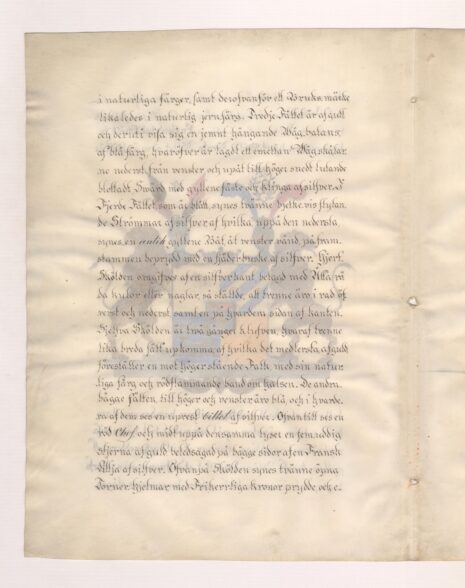 i naturliga färger, samt derofvanför ett Bruksmärke
likaledes i naturlig jernfärg. Tredje Fältet är af guld
och deruti visa sig en jemnt hängande Wåg-balans
af blå färg, hvaröfver är lagdt ett emellan Wågskålar-
ne nederst från venster och upåt till höger snedt lutande
blottadt Swärd med gyllene fäste och klinga af silfver. I
Fjerde Fältet, som är blått, synes tvänne bjelkevis flytan-
de Strömmar af silfver af hvilka, uppå den nedersta
synes en antik gyllene Båt, åt venster vänd, på fram-
stammen beprydd med en fjäderbuske af silfver. Hjert-
Skölden omgifves af en silfverkant, belagd med Åtta rö-
da kulor eller naglar, så ställde, att trenne äro i rad öf-
verst och nederst samt en på hvardera sidan af kanten.
Sjelfva Skölden är två gånger klufven, hvaraf trenne
lika breda fält upkomma, af hvilka det medlersta af guld
föreställer en mot höger stående Falk med sin natur-
liga färg och rödflammande band om halsen. De andra
bägge Fälten, till höger och venster äro blå, och i hvarde-
ra af dem ses en upprest billot af silfver. Ofvantill ses en
röd Chef och midt uppå densamma lyser en femuddig
stjerna af guld beledsagad på bägge sidor af en Fransk
Lilja af silfver. Ofvanpå Skölden synes tvänne öpna
Torner-hjelmar med Friherrliga Kronor prydde och e-